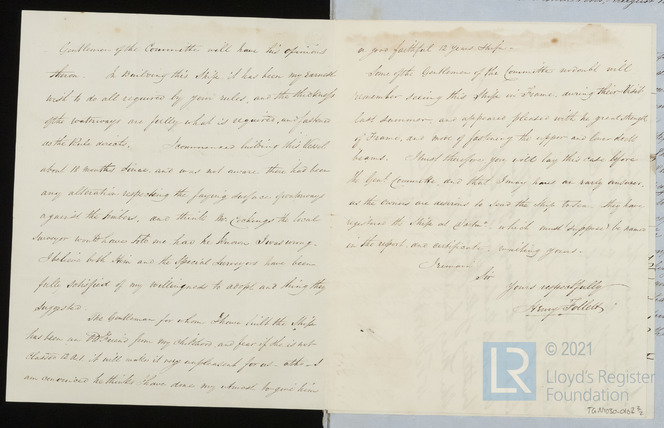 Gentlemen of the Committee will have his opinions
thereon. In Building this Ship it has been my earnest
wish to do all required by your rules, and the thickness
of the waterways are fully what is required, and fastened
as the Rule directs. I commenced building this Vessel
about 18 months since, and was not aware there had been
any alteration respecting the faying surface of waterways
against the timbers, and think Mr the local
Surveyor would have told me had he known I was wrong.
I believe both Him and the Special Surveyors have been
fully satisfied of my willingness to adopt any thing they
suggested.
The Gentleman for whom I have built the Ship
has been an Old Friend from my childhood, and fear if she is not
classed 12 A1, it will make it very unpleasant for us. altho I
am convinced he thinks I have done my utmost to give him
a good faithful 12 years Ship.
Some of the Gentlemen of the Committee no doubt will
remember seeing this Ship in Frame, during their Visit
last summer, and appeared pleased with the great strength
of Frame, and mode of fastening the upper and lower deck
beams. I trust therefore you will lay this case before
the Genl Committee, and that I may have an early answer,
as the owners are desirous to send the Ship to Sea. They have
registered the Ship at which must I suppose be named
in the report and certificate. waiting yours.
I remain
Sir
Yours respectfully
Henry Follett
LR © 2021
Lloyd's Register
Foundation